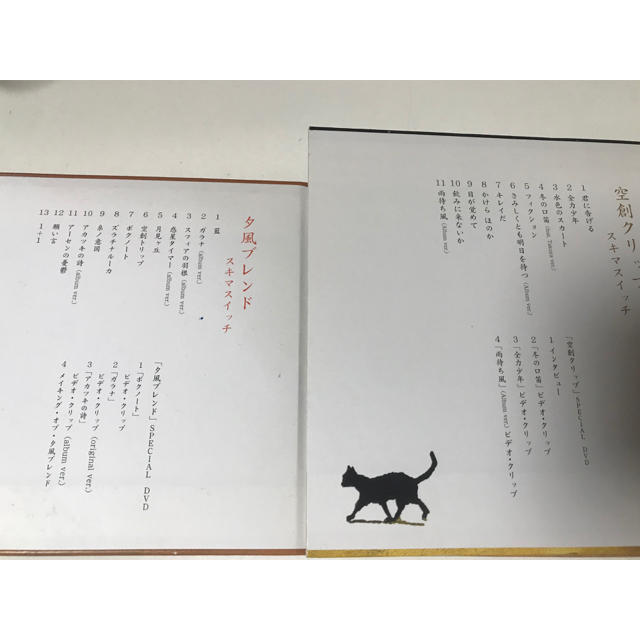 空創クリップ
スキマスイッチ
1 君に告げる
2 全力少年
3 水色のスカート
4 冬の口笛
5 フィクション
6 さみしくとも明日を待つ (Album ver.)
7 キレイだ
8 かけら ほのか
9 目が覚めて
10 飲みに来ないか
11 雨待ち風 (Album ver.)
「空創クリップ」SPECIAL DVD
1 インタビュー
2 「冬の口笛」ビデオ・クリップ
3 「全力少年」ビデオ・クリップ
4 「雨待ち風」(Album ver.) ビデオ・クリップ
夕風ブレンド
スキマスイッチ
1 藍
2 ガラナ (album ver.)
3 スフィアの羽根 (album ver.)
4 惑星タイマー (album ver.)
5 月見ヶ丘
6 空創トリップ
7 ボクノート
8 ズラチナルーカ
9 糸ノ意図
10 アカツキの詩 (album ver.)
11 アーセンの憂鬱
12 願い言
13 1+1
「夕風ブレンド」SPECIAL DVD
1 「ボクノート」
ビデオ・クリップ
2 「ガラナ」
ビデオ・クリップ (original ver.)
3 「アカツキの詩」
ビデオ・クリップ (album ver.)
4 メイキング・オブ・夕風ブレンド